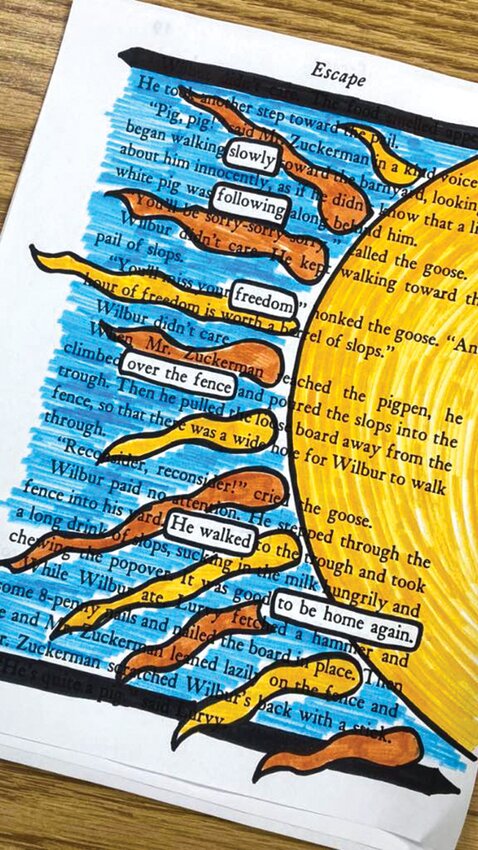 Escape
didn't care. The food smelled appe
He took another step toward the pail.
"Pig, pig!" said Mr. Zuckerman in a kind voice
began walking slowly toward the barnyard, lookin
about him innocently, as if he didn't know that a li
white pig was following along behind him.
"You'll be sorry-sorry-sorry," called the goose.
Wilbur didn't care. He kept walking toward th
pail of slops.
"You'll miss your freedom," honked the goose. "An
hour of freedom is worth a barrel of slops."
Wilbur didn't care.
When Mr. Zuckerman reached the pigpen, he
climbed over the fence and poured the slops into the
trough. Then he pulled the loose board away from the
fence, so that there was a wide hole for Wilbur to walk
through.
"Reconsider, reconsider!" cried the goose.
Wilbur paid no attention. He stepped through the
fence into his yard. He walked to the trough and took
a long drink of slops, sucking in the milk hungrily and
chewing the popover. It was good to be home again.
While Wilbur ate, Lurvy fetched a hammer and
some 8-penny nails and nailed the board in place. Then
e and Mr. Zuckerman leaned lazily on the fence and
r. Zuckerman scratched Wilbur's back with a stick.
"He's quite a pig," said Lurvy.